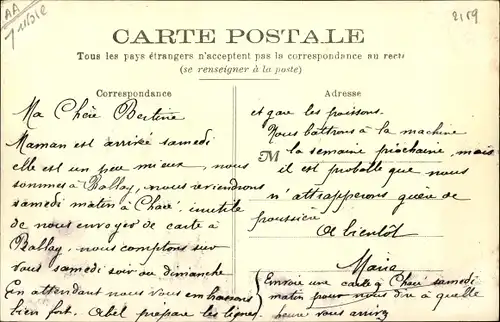 AA
2189
CARTE POSTALE
Tous les pays étrangers n'acceptent pas la correspondance au recto
(se renseigner à la poste)
Correspondance
Ma Chère Bertine
Maman est arrivée samedi
elle est un peu mieux, nous
sommes à Ballay, nous reviendrons
samedi matin à Charé, inutile
de nous envoyer de carte à
Ballay, nous comptons sur
vous samedi soir ou dimanche
En attendant nous vous embrassons
bien fort. Abel prépare les lignes
Adresse
et gare les poissons.
Nous battrons à la machine
M la semaine prochaine, mais
il est probable que nous
n'attrapperons guère de
poussière
A bientôt
Marie
Envoie une carte à Charé samedi
matin pour nous dire à quelle
heure vous arrivez